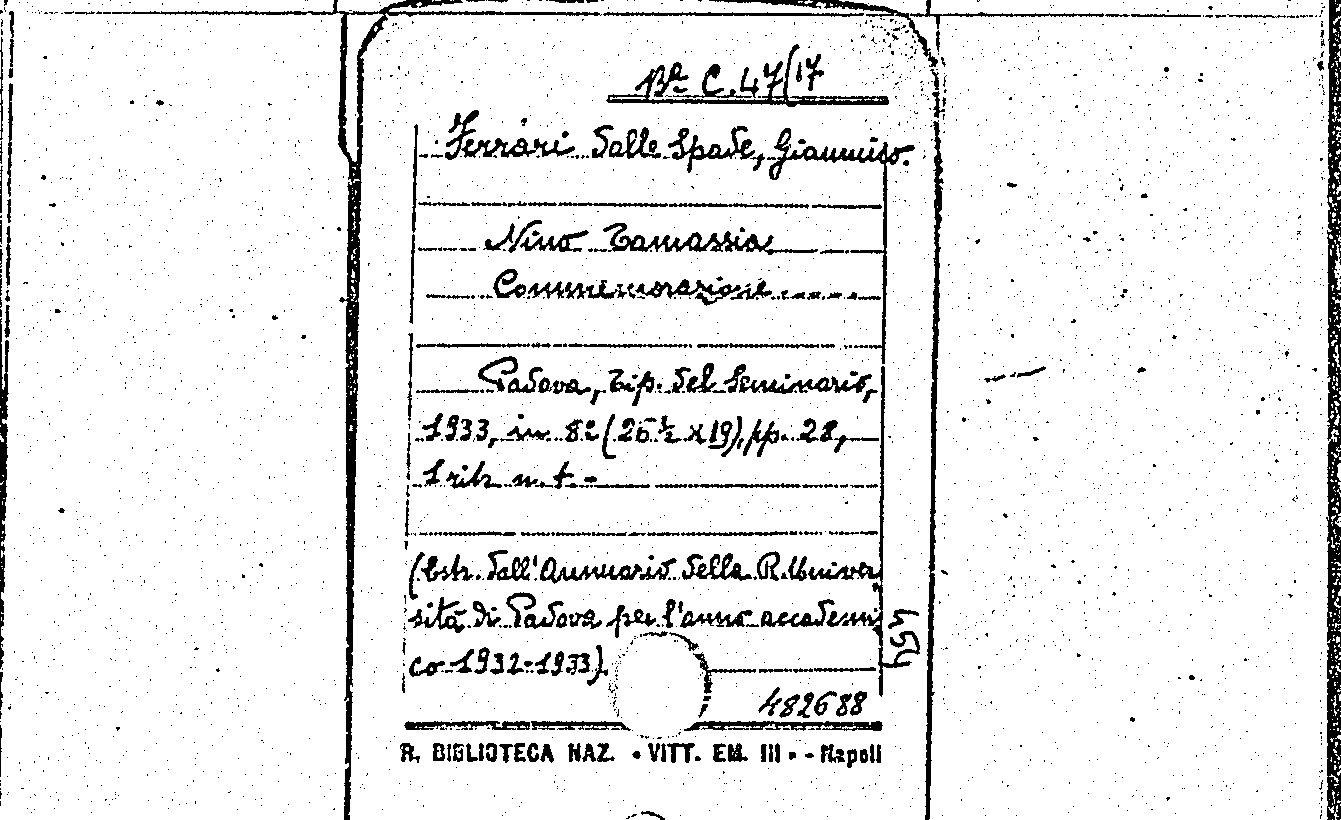 Bª C. 47(17
Ferrari dalle Spade, Giannino.
Nino Tamassia.
Commemorazione.....
Padova, Tip. del Seminario,
1933, in 8º (26½ x 19), pp. 28,
1 ritr. n.t. -
(Estr. dall'Annuario della R. Univer
sità di Padova per l'anno accademi
co 1932-1933).
482688
454
R. BIBLIOTECA NAZ. • VITT. EM. III • - Napoli